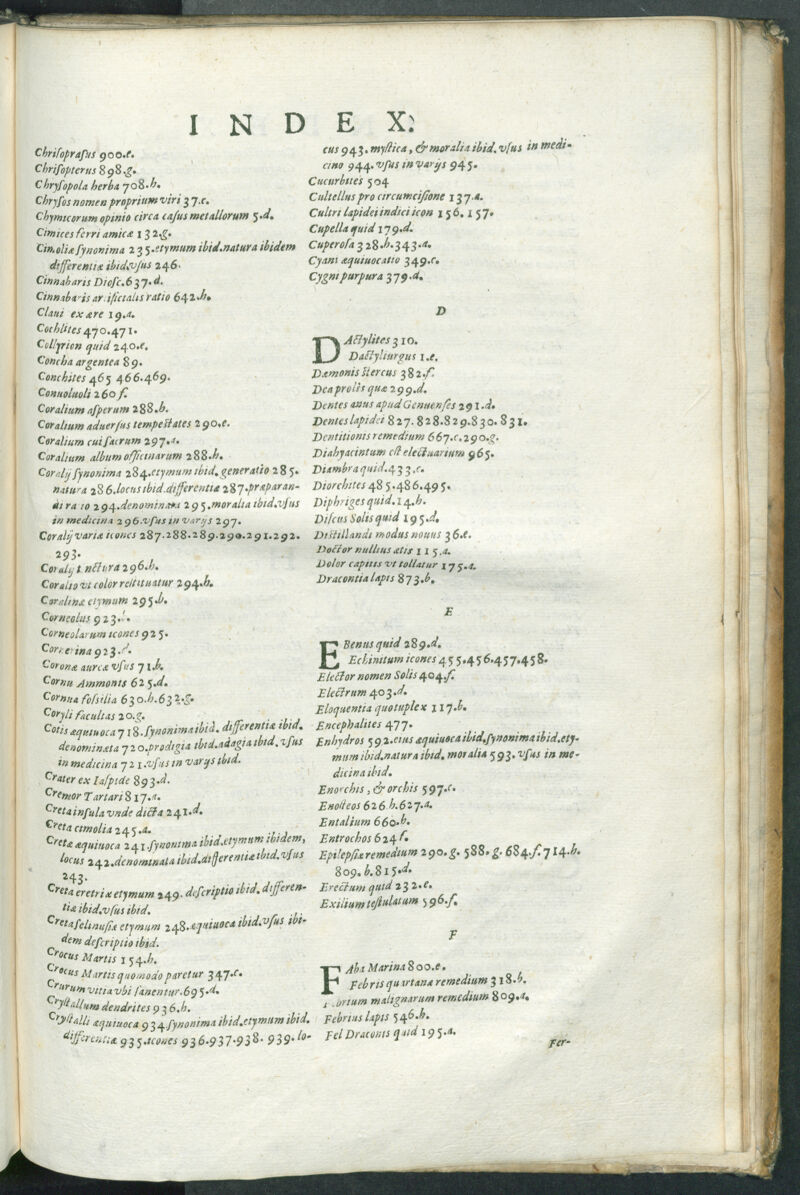 INDEX.
Chrisoprasus 900.e.
Chrisopterus 898.g.
Chrysopola herba 708.h.
Chrysos nomen proprium viri 37.c.
Chymicorum opinio circa casus metallorum 5.d.
Cimices ferri amicæ 132.g.
Cimoliæ synonima 235.etymum ibid.natura ibidem
differentiæ ibid.vsus 246.
Cinnabaris Diosc.637.d.
Cinnabaris artificialis ratio 642.h.
Claui ex ære 19.a.
Cochlites 470.471.
Collyrion quid 240.e.
Concha argentea 89.
Conchites 465 466.469.
Conuoluoli 260 f.
Coralium asperum 288.b.
Coralium aduersus tempestates 290.e.
Coralium cui sacrum 297.a.
Coralium album officinarum 288.h.
Coralij synonima 284.etymum ibid.generatio 285.
natura 286.locus ibid.differentiæ 287.præparan-
di ratio 294.denominata 295.moralia ibid.vsus
in medicina 296.vsus in varijs 297.
Coralij variæ icones 287.288.289.290.291.292.
293.
Coralij tinctura 296.h.
Coralio vt color restituatur 294.h.
Coralinæ etymum 295.b.
Corneolus 923.
Corneolarum icones 925.
Cornerina 923.
Coronæ aureæ vsus 71.b.
Cornu Ammonis 625.d.
Cornua fossilia 630.h.632.g.
Coryli facultas 20.g.
Cotis æquiuoca 718.synonima ibid. differentiæ ibid.
denominata 720.prodigia ibid.adagia ibid. vsus
in medicina 721.vsus in varijs ibid.
Crater ex Iaspide 893.d.
Cremor Tartari 817.a.
Creta insula vnde dicta 241.d.
Creta cimolia 245.a.
Cretæ æquiuoca 241.synonima ibid.etymum ibidem,
locus 242.denominata ibid.differentiæ ibid.vsus
243.
Creta eretriæ etymum 249. descriptio ibid. differen-
tiæ ibid.vsus ibid.
Creta selinusiæ etymum 248.æquiuoca ibid.vsus ibi-
dem descriptio ibid.
Crocus Martis 154.h.
Crocus Martis quomodo paretur 347.c.
Crurum vitia vbi sanentur.695.d.
Crystallum dendrites 936.h.
Crystalli æquiuoca 934 synonima ibid.etymum ibid.
differentiæ 935.icones 936.937.938. 939.lo-
cus 943. mystica, & moralia ibid. vsus in medi-
cino 944.vsus in varijs 945.
Cucurbites 504
Cultellus pro circumcisione 137.a.
Cultri lapidei indici icon 156. 157.
Cupella quid 179.d.
Cuperosa 328.h.343.a.
Cyani æquiuocatio 349.c.
Cygni purpura 379.d.
D
DActylites 310.
Dactyliurgus 1.e.
Dæmonis stercus 382.f.
Dea prolis quæ 299.d.
Dentes anus apud Genuenses 291.d.
Dentes lapidei 827.828.829.830.831.
Dentitionis remedium 667.c.290.g.
Diahyacintum est electuarium 965.
Diambra quid.433.c.
Diorchites 485.486.495.
Diphriges quid.14.h.
Discus Solis quid 195.d.
Distillandi modus nouus 36.e.
Doctor nullius ætis 115.a.
Dolor capitis vt tollatur 175.a.
Dracontia lapis 873.b.
E
EBenus quid 289.d.
Echinitum icones 455.456.457.458.
Elector nomen Solis 404.f.
Electrum 403.d.
Eloquentia quotuplex 117.b.
Encephalites 477.
Enhydros 592.eius æquiuoca ibid.synonima ibid.ety-
mum ibid.natura ibid. moralia 593. vsus in me-
dicina ibid.
Enorchis, & orchis 597.c.
Enosteos 626.h.627.a.
Entalium 660.b.
Entrochos 624 f.
Epilepsiæ remedium 290.g. 588.g.684.f.714.h.
809.b.815.d.
Erectum quid 232.e.
Exilium testulatum 596.f.
F
FAba Marina 800.e.
Febris quartana remedium 318.b.
Febrium malignarum remedium 809.a.
Febrius lapis 546.h.
Fel Draconis quid 195.a.
Fer-